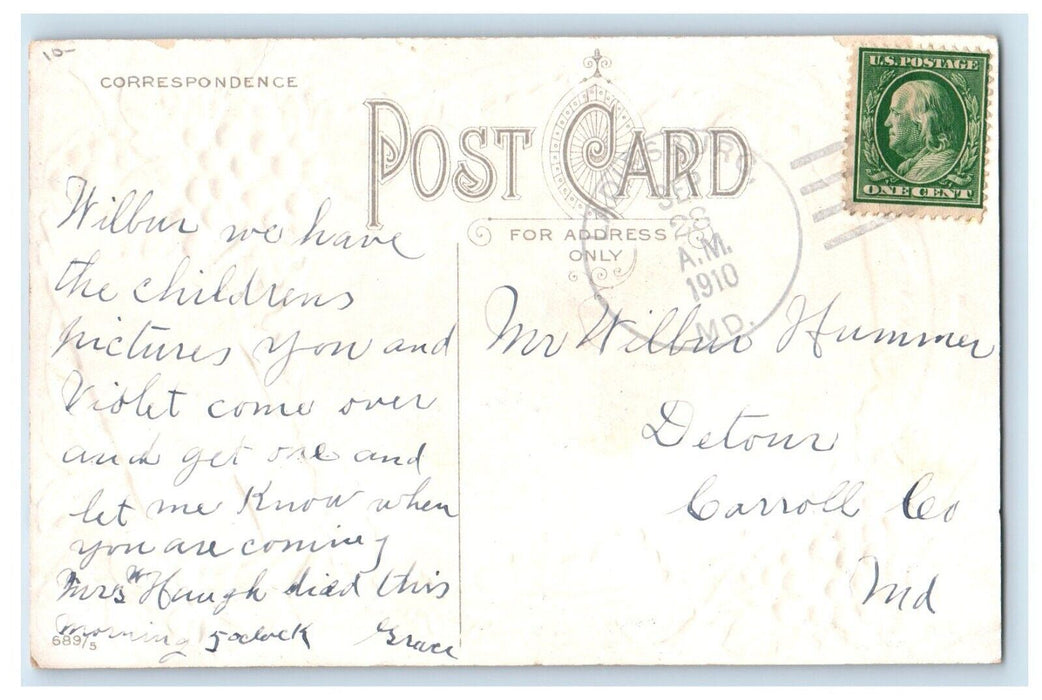 10-
CORRESPONDENCE
POST CARD
FOR ADDRESS
ONLY
U.S. POSTAGE
ONE CENT
SEP
28
A.M.
1910
MD.
Wilbur we have
the childrens
pictures you and
Violet come over
and get one and
let me Know when
you are coming
Mrs W Haugh died this
morning 5 oclock Grace
689/5
Mr Wilbur Hummer
Detour
Carroll Co
Md